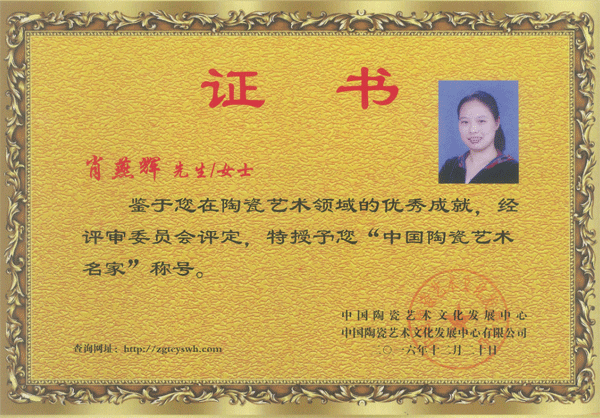 证 书
肖燕辉 先生/女士
鉴于您在陶瓷艺术领域的优秀成就，经
评审委员会评定，特授予您“中国陶瓷艺术
名家”称号。
中国陶瓷艺术文化发展中心
中国陶瓷艺术文化发展中心有限公司
查询网址：http://zgtcyswh.com
〇一六年十二月二十日